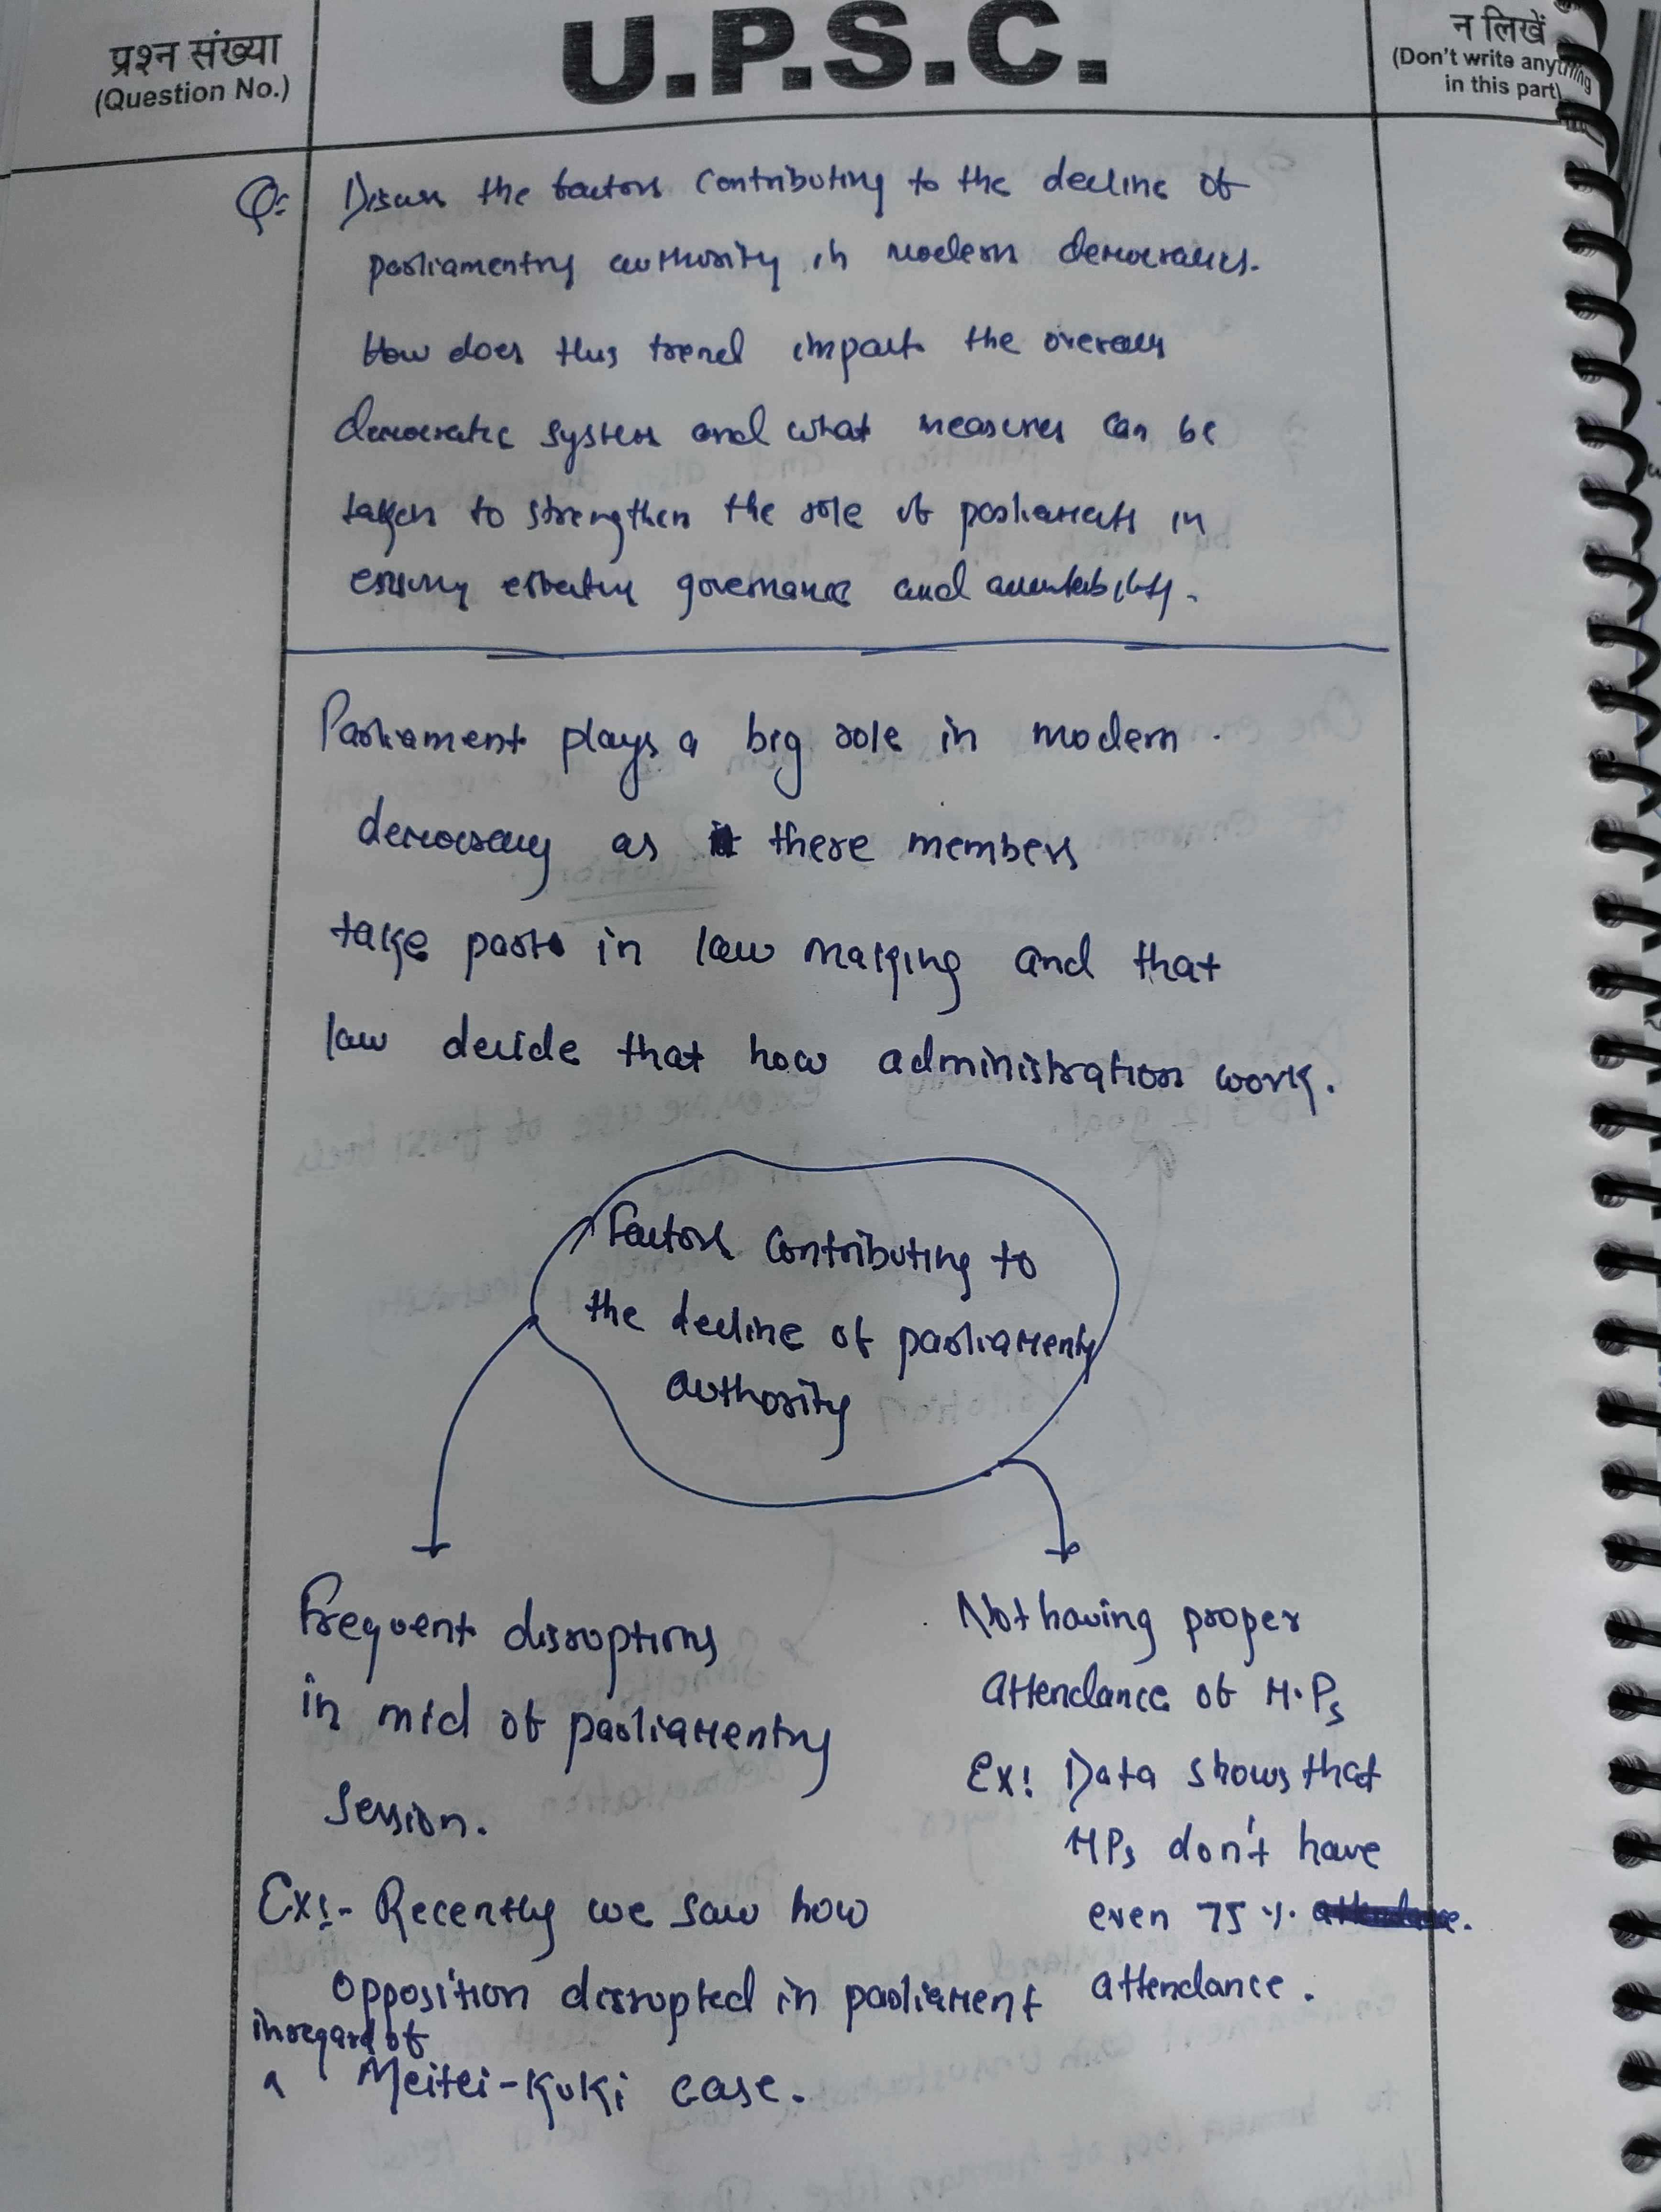 प्रश्न संख्या
(Question No.)
U.P.S.C.
न लिखें
(Don't write anything
in this part)
Q: Discuss the factors contributing to the decline of
parliamentry authority in modern democracies.
How does this trend impact the overall
democratic system and what measures can be
taken to strengthen the role of parliaments in
ensuring effective governance and accountability.
Parliament plays a big role in modern
democracy as there members
take part in law making and that
law decide that how administration work.
Factors contributing to
the decline of parliamenty
authority
Frequent disruptions
in mid of parliamentry
session.
Ex:- Recently we saw how
opposition disrupted in parliament
in regard of
Meitei-Kuki case.
Not having proper
attendance of M.Ps
Ex: Data shows that
MPs don't have
even 75%
attendance.